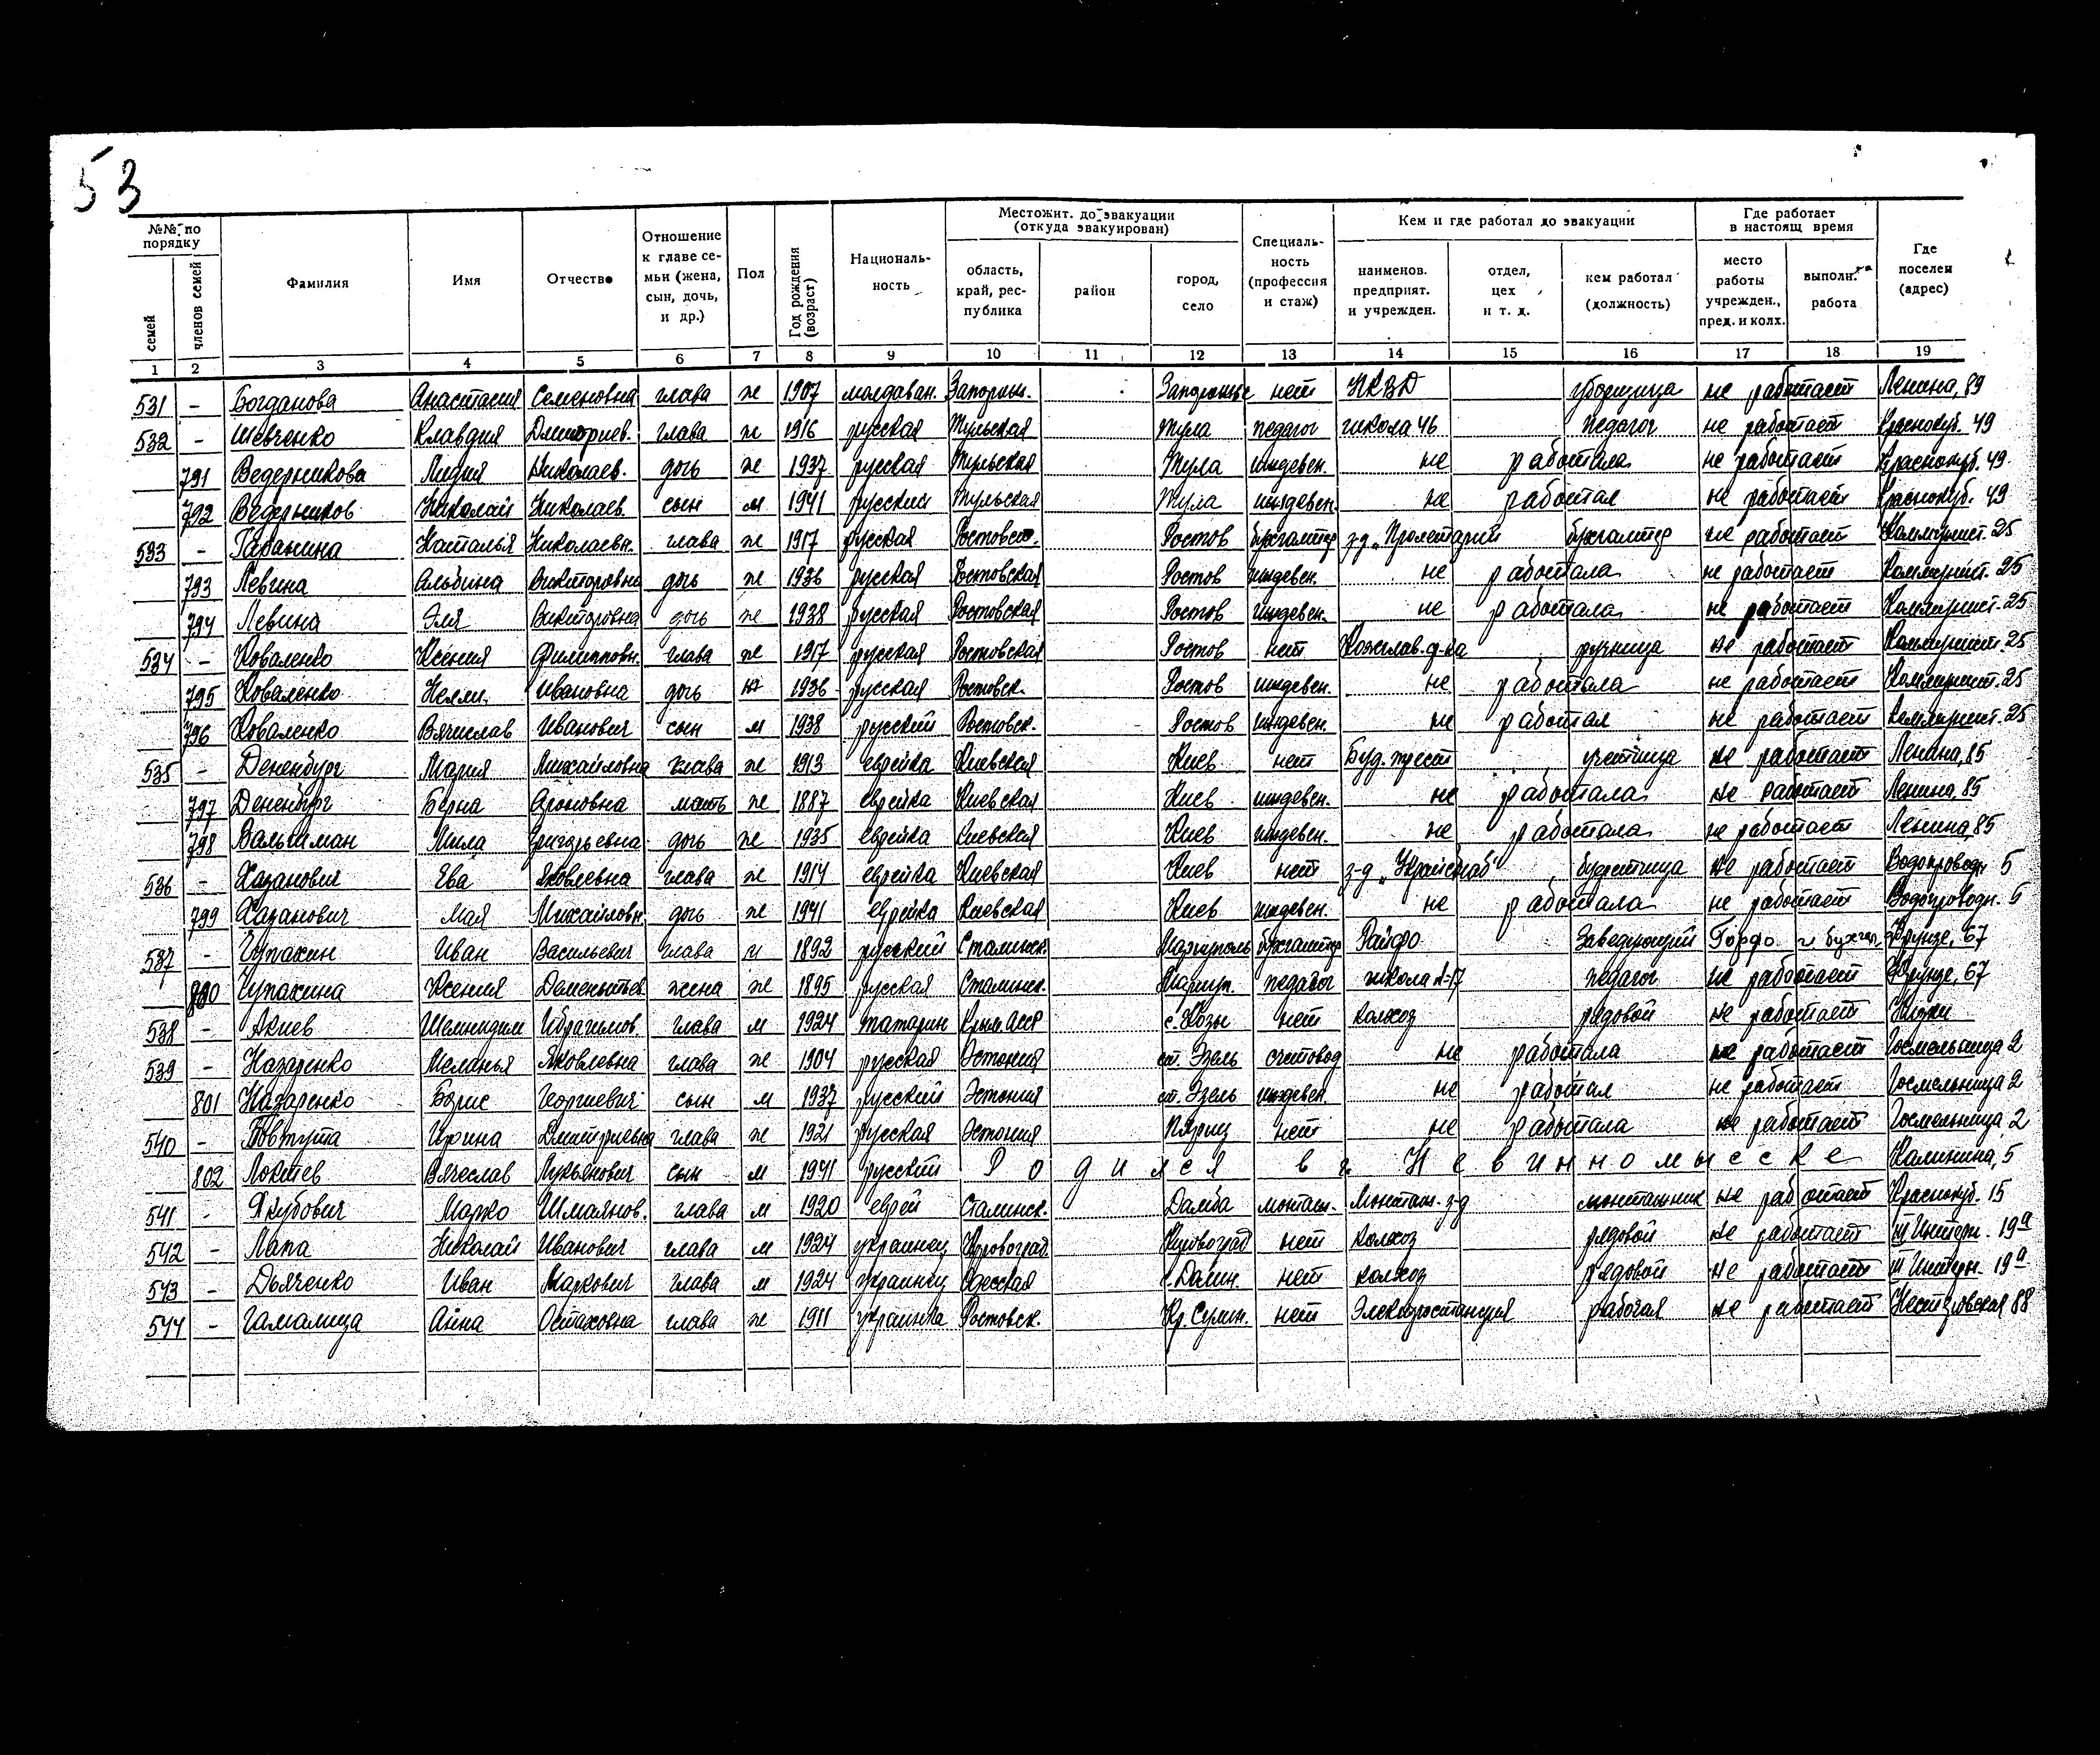 53
№№ по порядку | Фамилия | Имя | Отчество | Отношение к главе семьи (жена, сын, дочь, и др.) | Пол | Год рождения (возраст) | Националь-ность | Местожит. до эвакуации (откуда эвакуирован) | Специаль-ность (профессия и стаж) | Кем и где работал до эвакуации | Где работает в настоящ время | Где поселен (адрес)
семей | членов семей | область, край, рес-публика | район | город, село | наименов. предприят. и учрежден. | отдел, цех и т. д. | кем работал (должность) | место работы учрежден., пред. и колх. | выполн. работа
1 2 3 4 5 6 7 8 9 10 11 12 13 14 15 16 17 18 19
531 - Богданова Анастасия Семеновна глава ж 1907 молдаван. Запорож. Запорожье нет НКВД уборщица не работает Ленина, 89
532 - Шевченко Клавдия Дмитриев. глава ж 1916 русская Тульская Тула педагог школа 46 педагог не работает Краснокуб. 49
791 Ведерникова Лидия Николаев. дочь ж 1937 русская Тульская Тула иждевен. не работала не работает Краснокуб. 49
792 Ведерников Николай Николаев. сын м 1941 русский Тульская Тула иждевен. не работал не работает Краснокуб. 49
533 - Наталья Николаевн. глава ж 1917 русская Ростовск. Ростов бухгалтер з-д „Пролетарий бухгалтер не работает Коммунист. 25
793 Левина Альбина Викторовна дочь ж 1936 русская Ростовская Ростов иждевен. не работала не работает Коммунист. 25
794 Левина Эля Викторовна дочь ж 1938 русская Ростовская Ростов иждевен. не работала не работает Коммунист. 25
534 - Коваленко Ксения Филипповн. глава ж 1917 русская Ростовская Ростов нет ф-ка не работает Коммунист. 25
795 Коваленко Нелли Ивановна дочь ж 1936 русская Ростовск. Ростов иждевен. не работала не работает Коммунист. 25
796 Коваленко Вячислав Иванович сын м 1938 русский Ростовск. Ростов иждевен. не работал не работает Коммунист. 25
535 - Дененбург Мария Михайловна глава ж 1913 еврейка Киевская Киев нет Буд. трест не работает Ленина, 85
797 Дененбург Берна Ароновна мать ж 1887 еврейка Киевская Киев иждевен. не работала не работает Ленина, 85
798 Вальтман Мила Григорьевна дочь ж 1935 еврейка Киевская Киев иждевен. не работала не работает Ленина, 85
536 - Хазанович Ева Яковлевна глава ж 1914 еврейка Киевская Киев нет з-д буфетчица не работает Водопроводн 5
799 Хазанович Мая Михайловн. дочь ж 1941 еврейка Киевская Киев иждевен. не работала не работает Водопроводн. 5
537 - Чупахин Иван Васильевич глава м 1892 русский Сталинск. Мариуполь бухгалтер Райфо Заведующий Горфо Фрунзе, 67
800 Чупахина Ксения Дементьев. жена ж 1895 русская Сталинск. Мариуп. педагог школа №-17 педагог не работает Фрунзе, 67
538 - Акиев Ибрагимов. глава м 1924 татарин Крым АССР с. Козы нет колхоз рядовой не работает
539 - Назаренко Меланья Яковлевна глава ж 1904 русская Эстония ст. Эзель счетовод не работала не работает Госмельница 2
801 Назаренко Борис Георгиевич сын м 1937 русский Эстония ст. Эзель иждевен. не работал не работает Госмельница 2
540 - Ковтута Ирина Дмитриевна глава ж 1921 русская Эстония нет не работала не работает Госмельница, 2
802 Локтев Вячеслав Лукьянович сын м 1941 русский Родился в г. Невинномысске Калинина, 5
541 - Якубович Марко глава м 1920 еврей Сталинск. Дамба монтаж. Монтаж. з-д монтажник не работает Краснокуб. 15
542 - Лапа Николай Иванович глава м 1924 украинец Кировоград. Кировоград нет колхоз рядовой не работает III Интерн. 19а
543 - Дьяченко Иван Маркович глава м 1924 украинец Одесская нет колхоз рядовой не работает III Интерн. 19а
544 - Гамалица Анна Остаховна глава ж 1911 украинка Ростовск. Кр. Сулин. нет Электростанция рабочая не работает 88